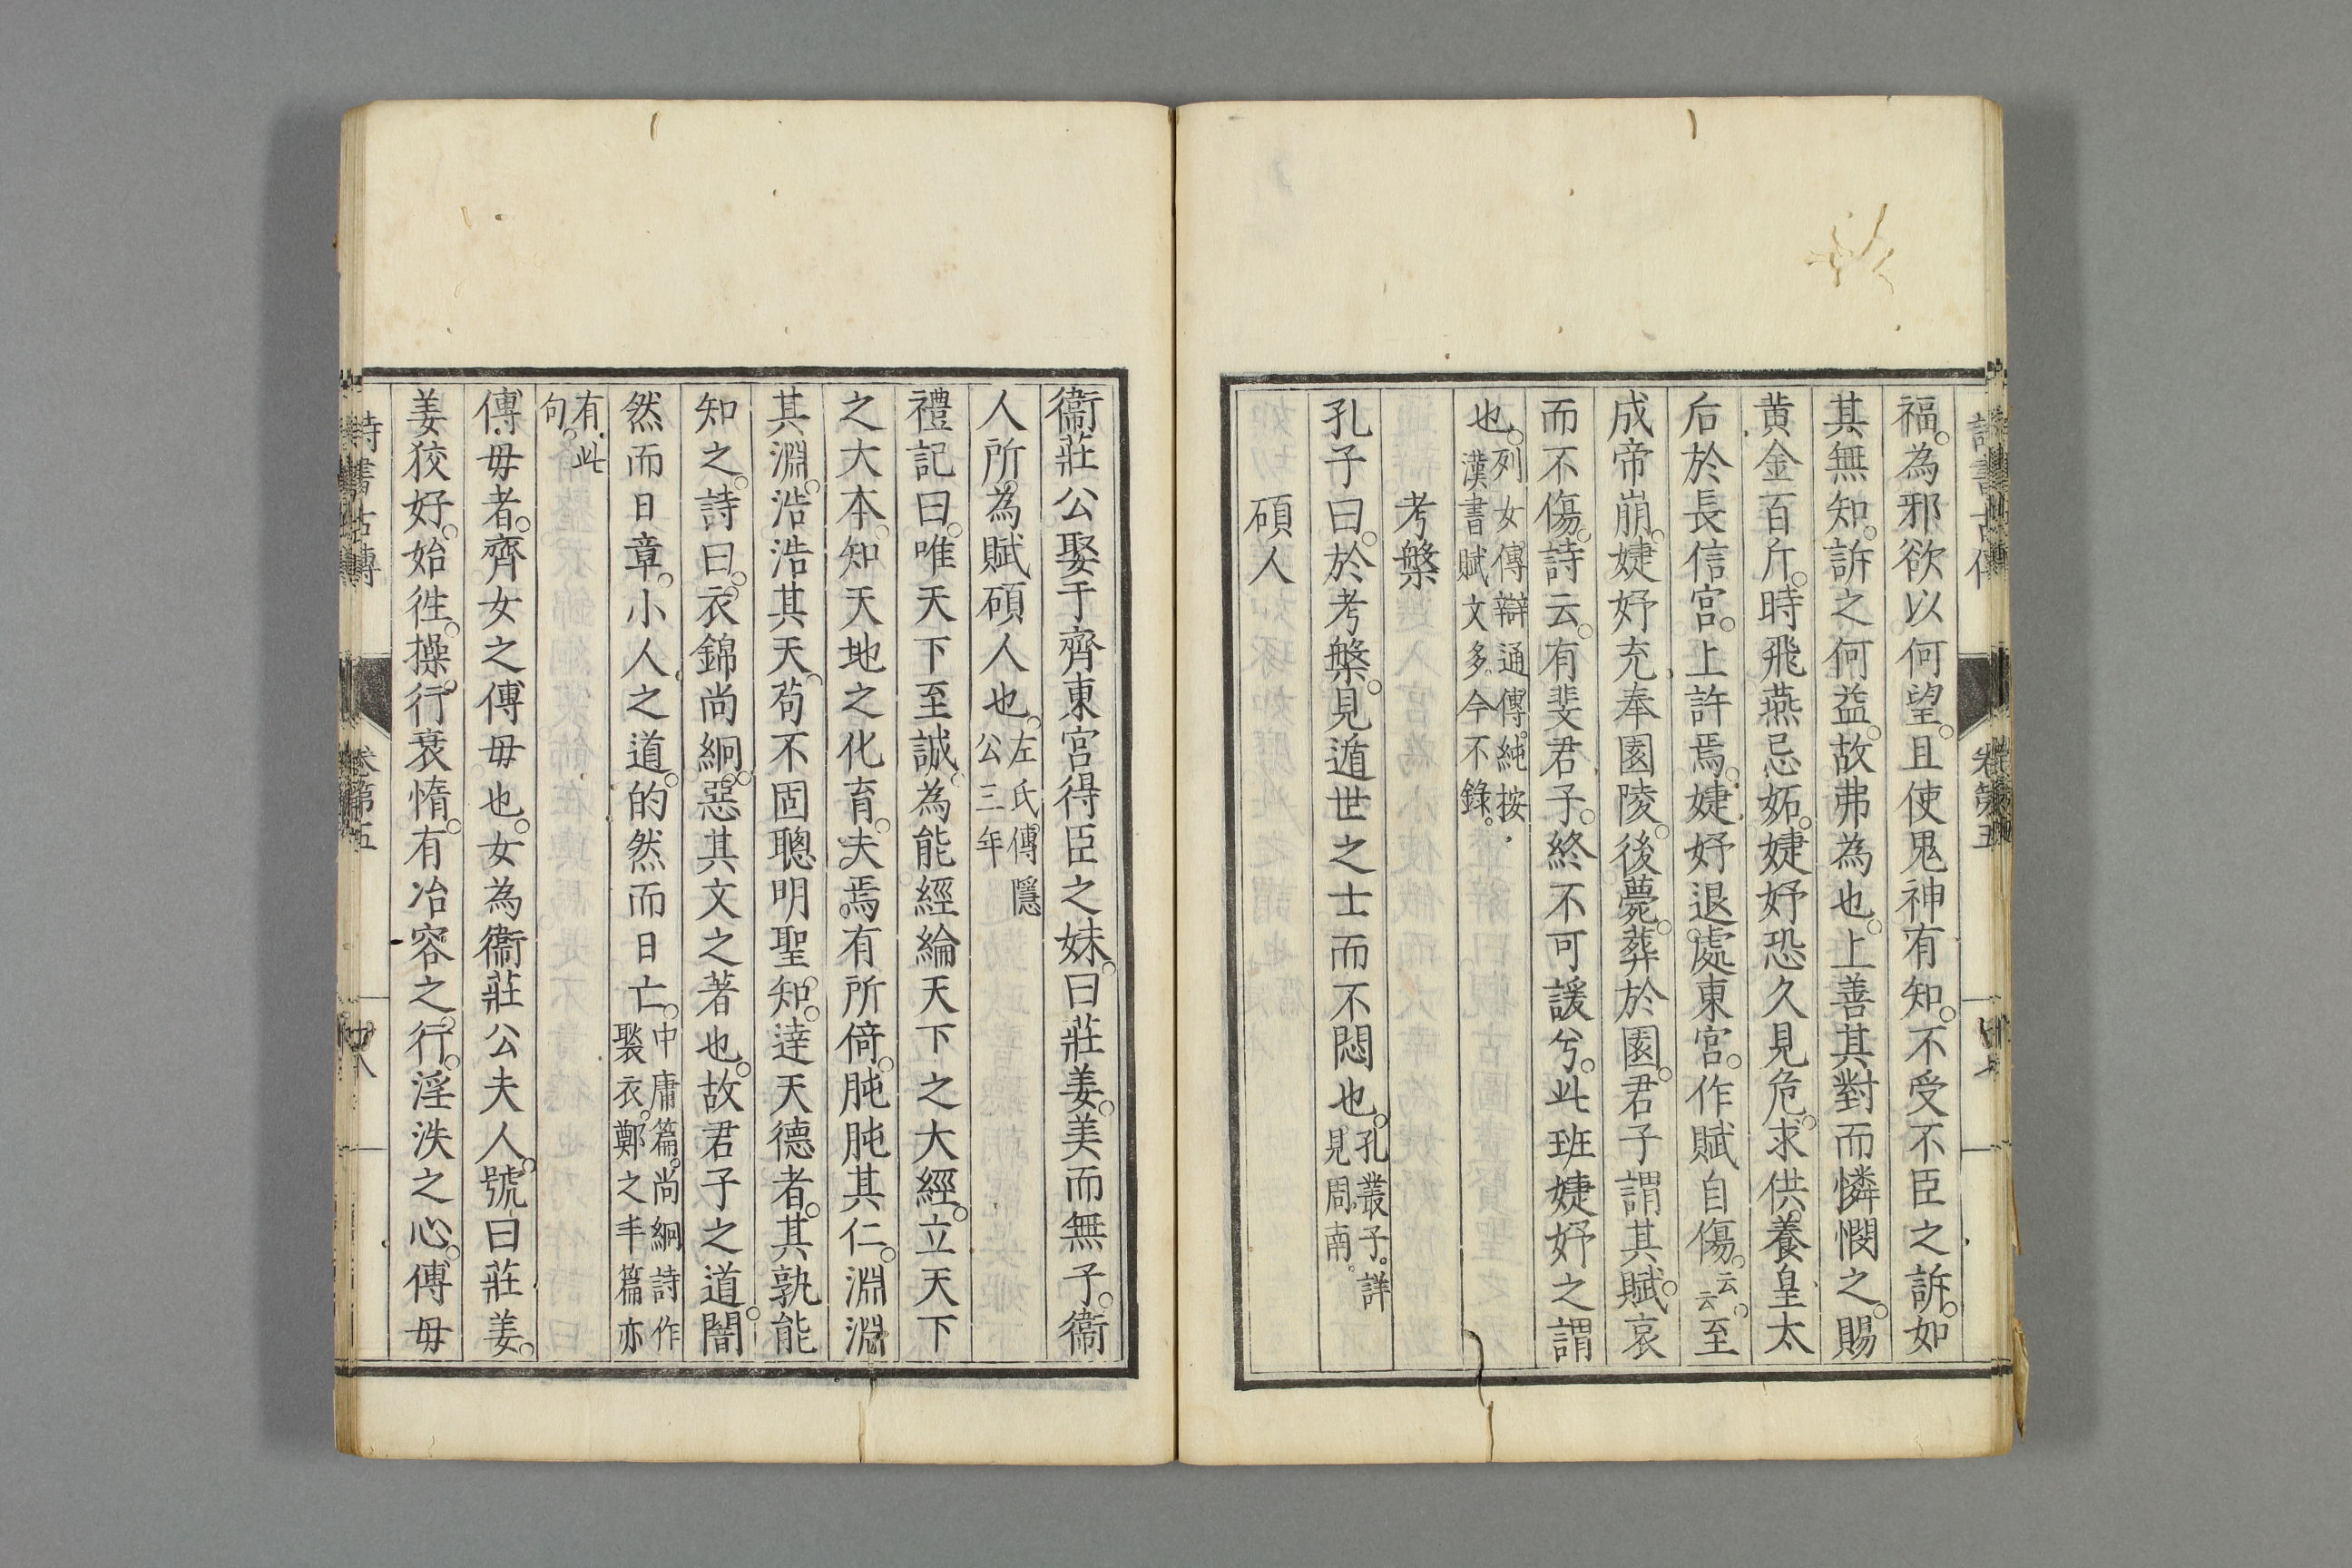 福。為邪欲以何望。且使鬼神有知。不受不臣之訴。如
其無知。訴之何益。故弗為也。上善其對而憐憫之。賜
黄金百斤。時飛燕忌妬。婕妤恐久見危。求供養皇太
后於長信宮。上許焉。婕妤退處東宮。作賦自傷。云云。至
成帝崩。婕妤充奉園陵。後薨。葬於園。君子謂其賦。哀
而不傷。詩云。有斐君子。終不可諼兮。此班婕妤之謂
也。列女傳辯通傳。純按
漢書賦文多。今不錄。
考槃
孔子曰。於考槃。見遁世之士而不悶也。孔叢子。詳
見周南。
碩人
衞莊公娶于齊東宮得臣之妹。曰莊姜。美而無子。衞
人所為賦碩人也。左氏傳隱
公三年
禮記曰。唯天下至誠。為能經綸天下之大經。立天下
之大本。知天地之化育。夫焉有所倚。肫肫其仁。淵淵
其淵。浩浩其天。苟不固聰明聖知。達天德者。其孰能
知之。詩曰。衣錦尚絅。惡其文之著也。故君子之道。闇
然而日章。小人之道。的然而日亡。中庸篇。尚絅詩作
褧衣。鄭之丰篇亦
有此
句。
傳毋者。齊女之傅毋也。女為衞莊公夫人。號曰莊姜。
姜狡好。始往。操行衰惰。有冶容之行。淫泆之心。傅毋
詩書古傳
卷第五
廿八